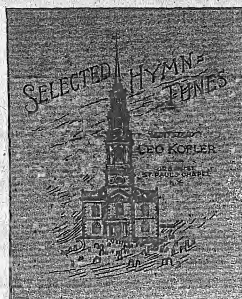 SELECTED HYMN=
TUNES
GEO KOFLER
ST PAUL'S CHAPEL
N.Y.